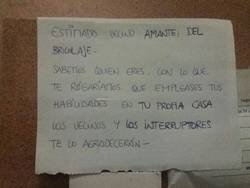 ESTIMADO VECINO AMANTE DEL
BRICOLAJE.
SABEMOS QUIEN ERES. CON LO QUE
TE ROGARÍAMOS QUE EMPLEASES TUS
HABILIDADES EN TU PROPIA CASA
LOS VECINOS Y LOS INTERRUPTORES
TE LO AGRADECERÁN-